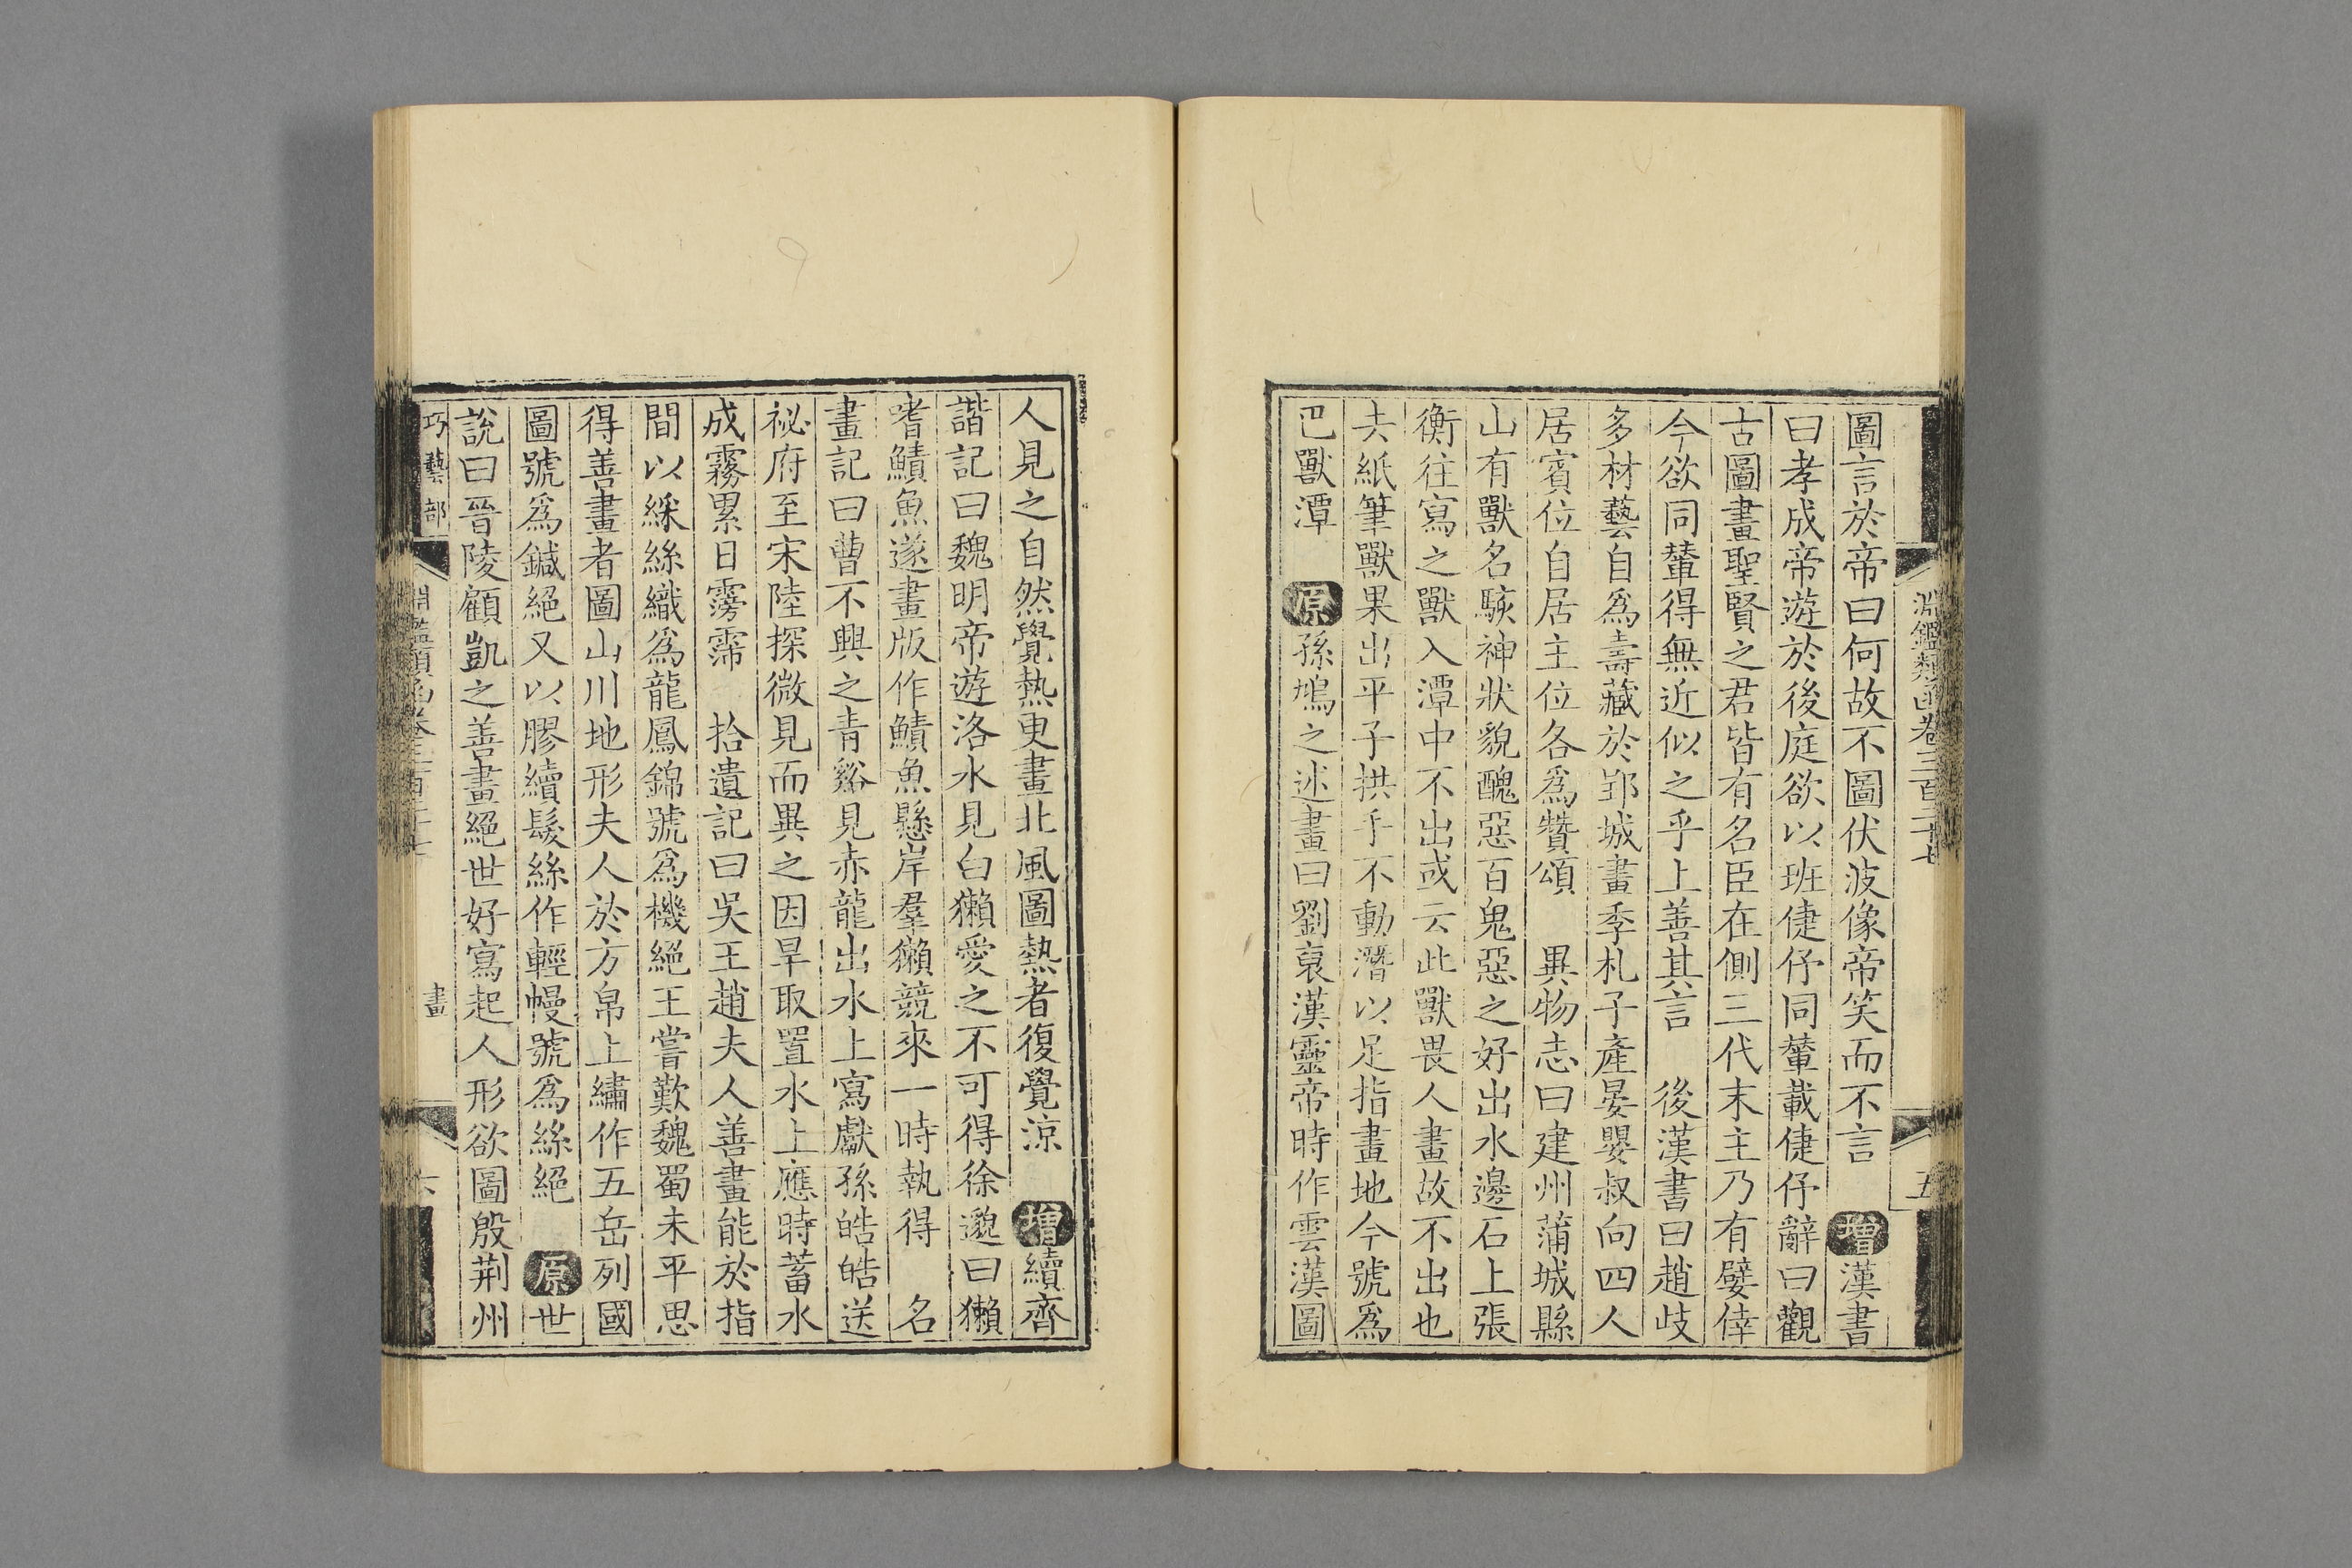 淵鑑類函卷三百二十七
五
圖言於帝曰何故不圖伏波像帝笑而不言 增漢書
曰孝成帝遊於後庭欲以班倢伃同輦載倢伃辭曰觀
古圖畫聖賢之君皆有名臣在側三代末主乃有嬖倖
今欲同輦得無近似之乎上善其言 後漢書曰趙歧
多材藝自爲壽藏於郢城畫季札子產晏嬰叔向四人
居賓位自居主位各爲贊頌 異物志曰建州蒲城縣
山有獸名駭神狀貌醜惡百鬼惡之好出水邊石上張
衡往寫之獸入潭中不出或云此獸畏人畫故不出也
去紙筆獸果出平子拱手不動潛以足指畫地今號爲
巴獸潭 原孫鳩之述畫曰劉裒漢靈帝時作雲漢圖
人見之自然覺熱更畫北風圖熱者復覺涼 增續齊
諧記曰魏明帝遊洛水見白獺愛之不可得徐邈曰獺
嗜鯖魚遂畫版作鯖魚懸岸羣獺競來一時執得 名
畫記曰曹不興之青谿見赤龍出水上寫獻孫皓皓送
祕府至宋陸探微見而異之因旱取置水上應時蓄水
成霧累日霶霈 拾遺記曰吳王趙夫人善畫能於指
間以綵絲織爲龍鳳錦號爲機絕王嘗歎魏蜀未平思
得善畫者圖山川地形夫人於方帛上繡作五岳列國
圖號爲鍼絕又以膠續髮絲作輕幔號爲絲絕 原世
說曰晉陵顧凱之善畫絕世好寫起人形欲圖殷荆州
巧藝部
畫
六